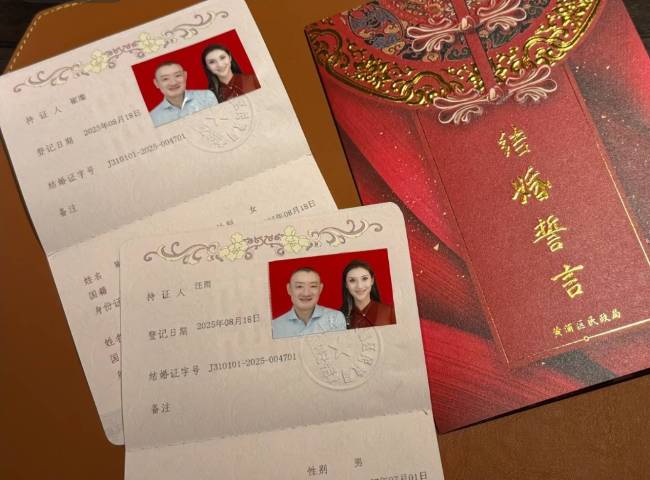 持证人
登记日期 2025年08月18日
结婚证字号 J310101-2025-004701
备注
性别 女
姓名
国籍
身份证
姓名
持证人 汪雨
登记日期 2025年08月18日
结婚证字号 J310101-2025-004701
备注
性别 男
结婚誓言
黄浦区民政局